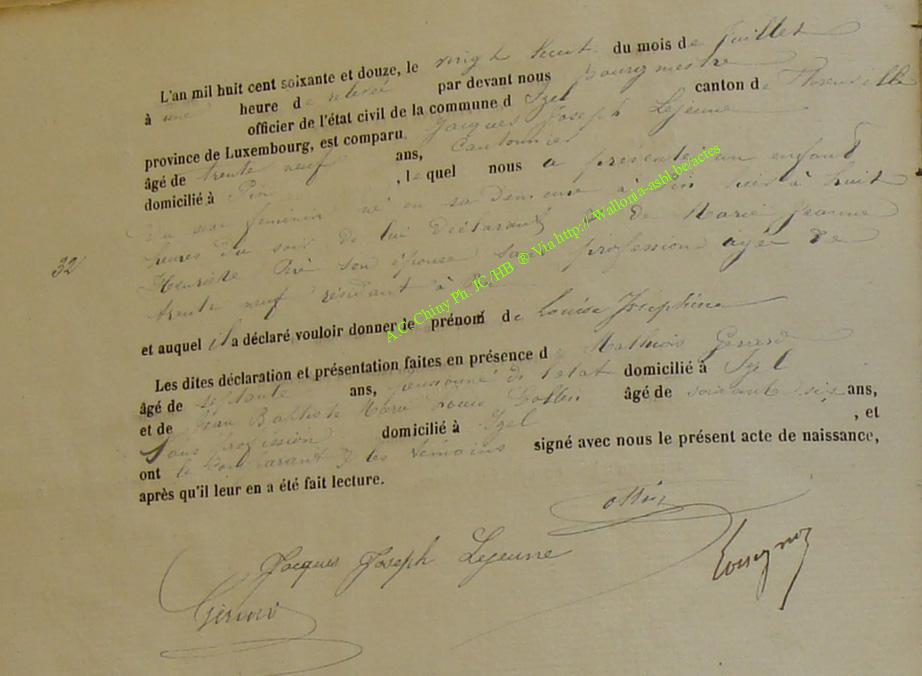 L'an mil huit cent soixante et douze, le vingt huit du mois de Juillet
à une heure de relevée par devant nous Bourgmestre
officier de l'état civil de la commune d Izel canton de Florenville
province de Luxembourg, est comparu Jacques Joseph Lejeune
âgé de trente neuf ans, Cantonnier
domicilié à Pin , lequel nous a présenté un enfant
du sexe féminin né en sa demeure à Pin hier à huit
heures du soir de lui déclarant et de Marie Jeanne
32
Henriette son épouse sans profession agée de
trente neuf résidant à Pin
et auquel il a déclaré vouloir donner le prénom de Louise Joséphine
Les dites déclaration et présentation faites en présence d Mathieu Gerard
âgé de septante ans, pensionné de l'état domicilié à Izel
et de Jean Baptiste Marie Louis âgé de soixante six ans,
Sans profession domicilié à Izel , et
ont le comparant & les témoins signé avec nous le présent acte de naissance,
après qu'il leur en a été fait lecture.
Jacques Joseph Lejeune
A.C. Chiny Ph. JC/HB ® Via http://Wallonia-asbl.be/actes